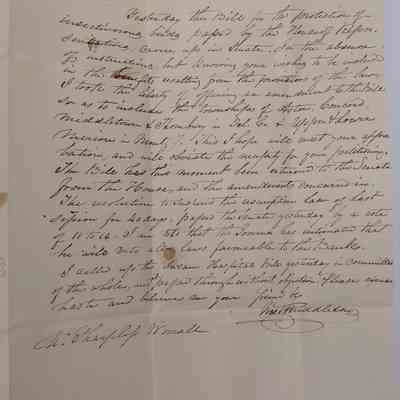 Yesterday the Bill for the protection of
insectivorous birds, passed by the House of Repre-
sentatives, came up in Senate, & in the absence
of instruction, but knowing your wishes to be included
in the benefits resulting from the provisions of the law
I took the liberty of offering an amendment to the Bill
so as to include the townships of Aston, Concord,
Middletown & Thornbury in Del. Co & Upper & Lower
Merion in Mont. Co. This I hope will meet your appro
bation, and will obviate the necessity for your petitioning.
The Bill has this moment been returned to the Senate
from the House, and the amendments concurred in.
The resolution to suspend the resumption law of last
session for 40 days, passed the Senate yesterday by a vote
of 18 to 14. I am told that the Governor has intimated that
he will veto any laws favourable to the Banks.
I called up the Insane Hospital Bill yesterday in committee
of the whole, and passed through without objection. Please excuse
haste and believe me your friend &c
Middleton
Mr. Sharpless Worrall